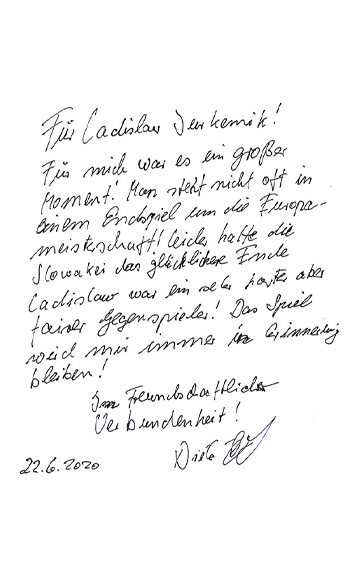 Für Ladislav Jurkemik!
Für mich war es ein großer
Moment! Man steht nicht oft in
einem Endspiel um die Europa-
meisterschaft! Leider hatte die
Slowakei das glücklichere Ende
Ladislaw war ein sehr harter aber
fairer Gegenspieler! Das Spiel
wird mir immer in Erinnerung
bleiben!
In Freundschaftlicher
Verbundenheit!
22.6.2020 Dieter